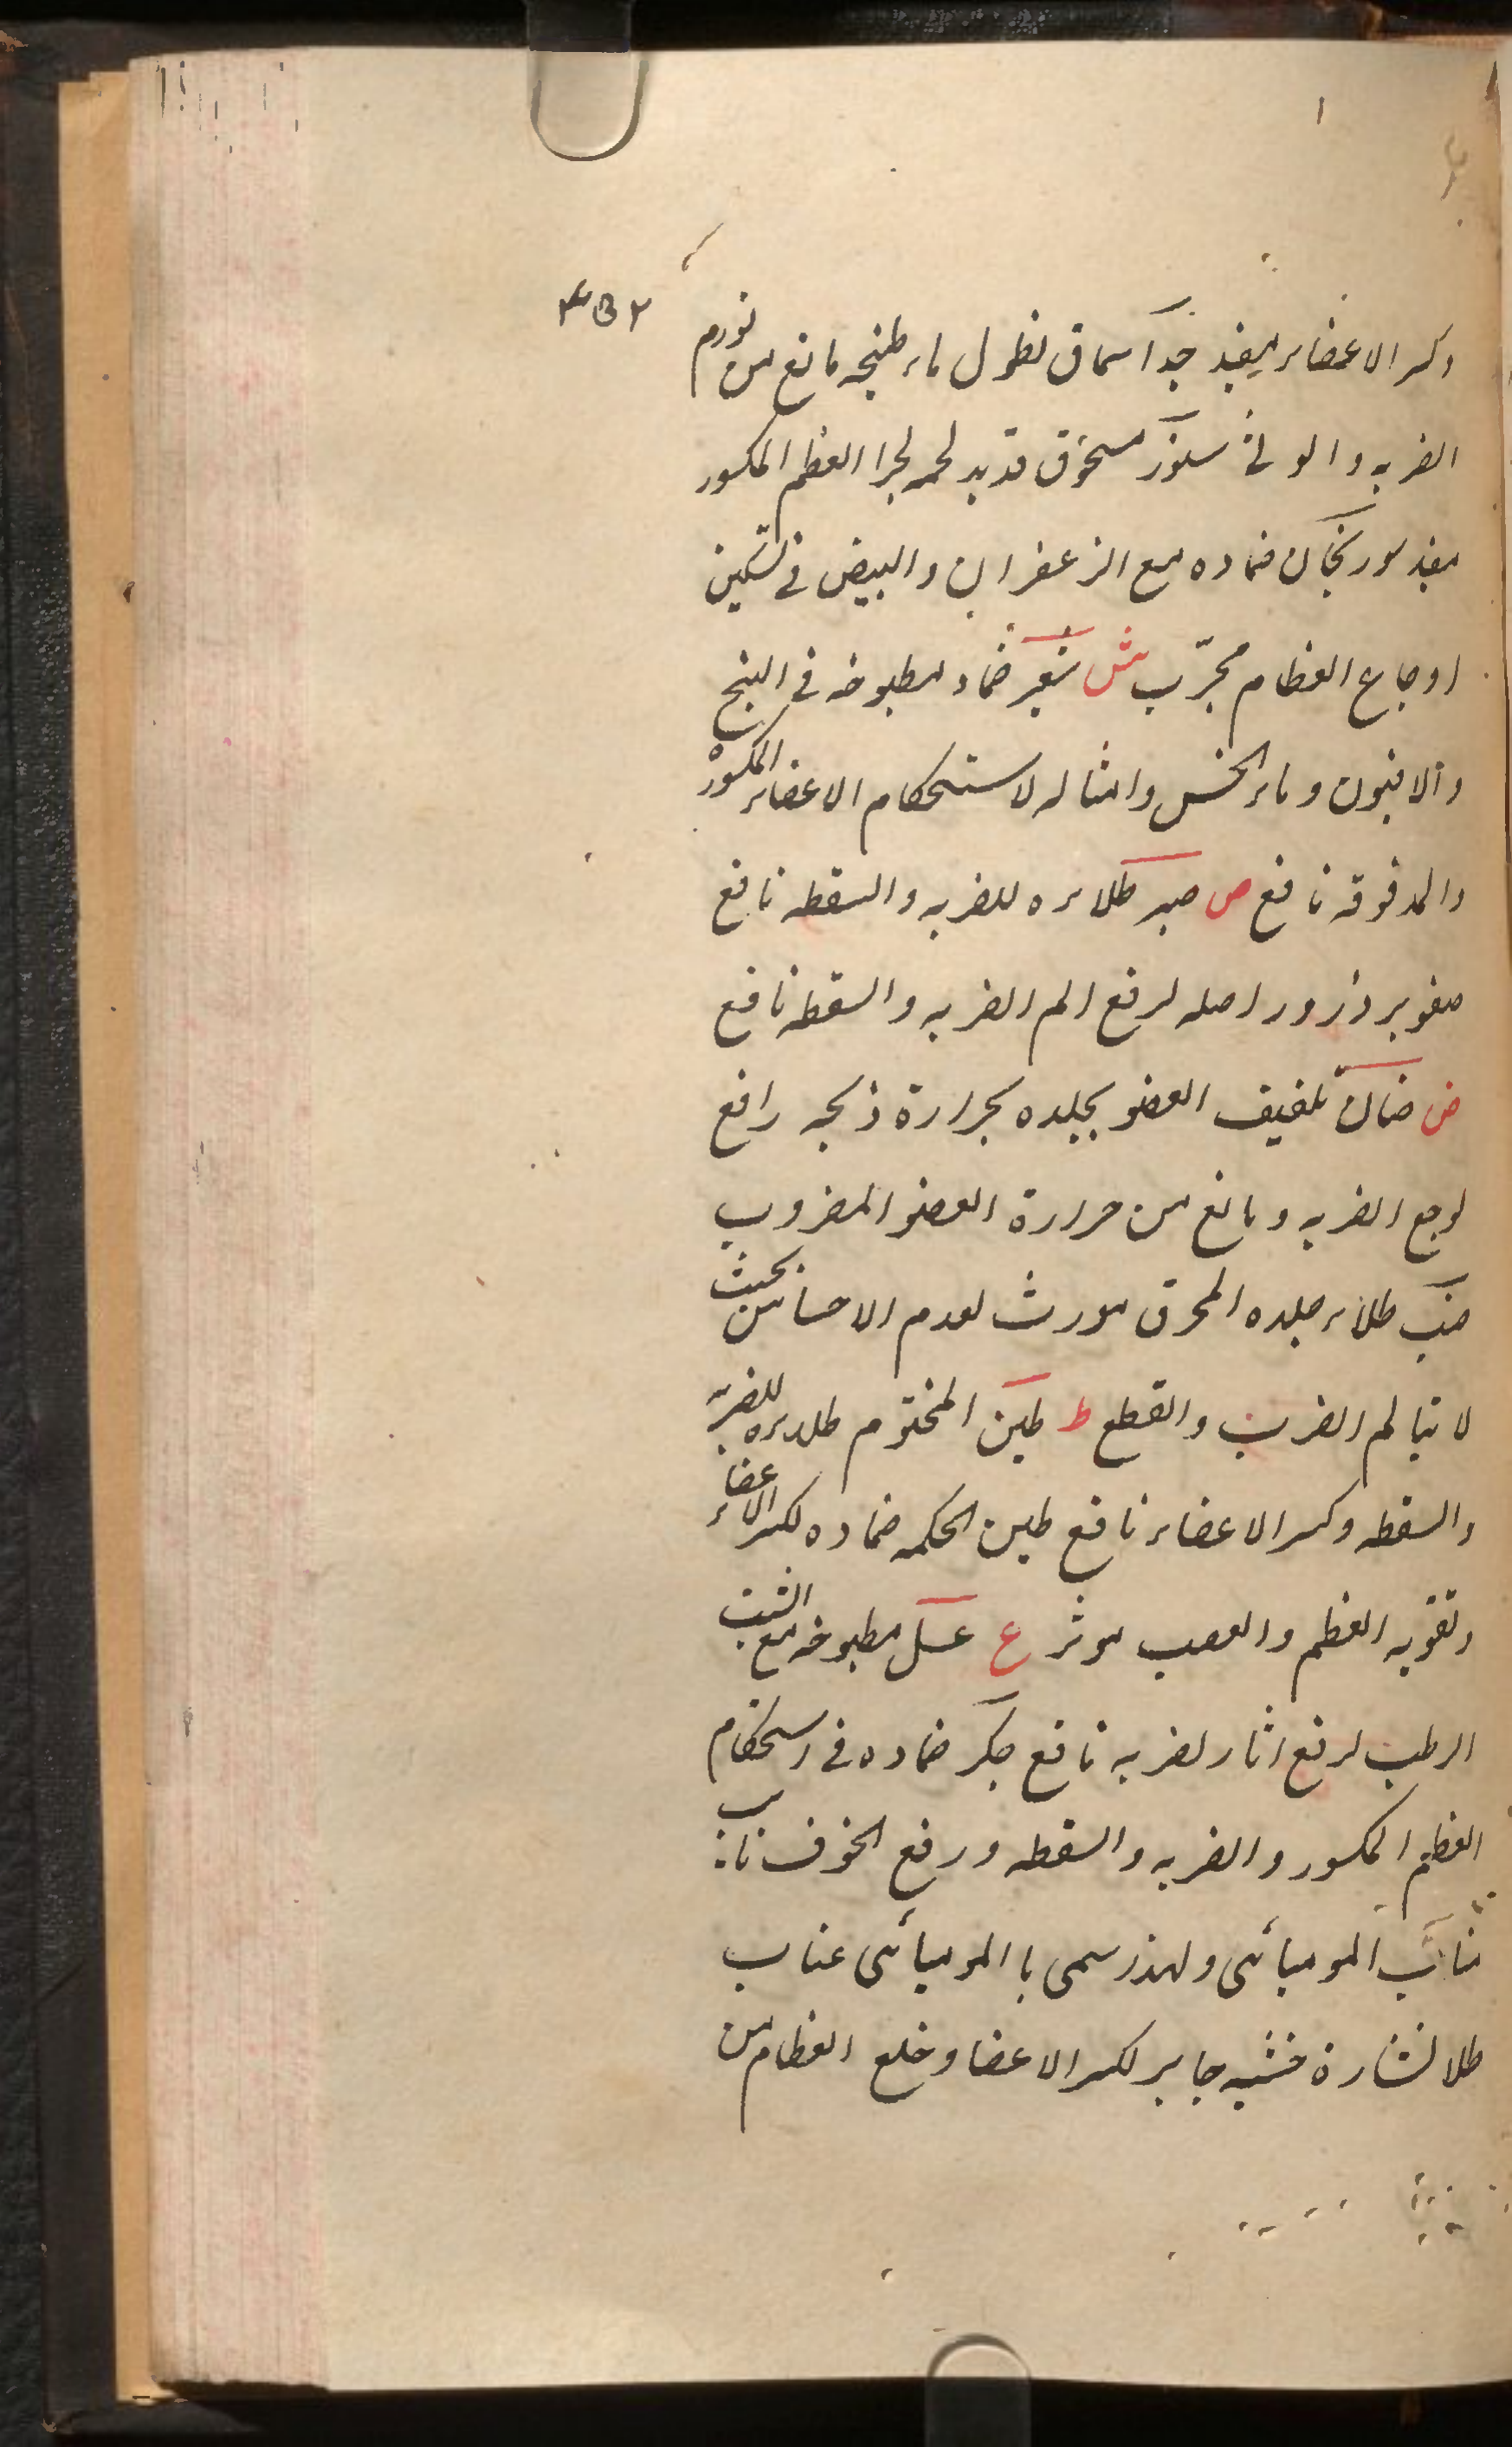 ۴۵۲
وكسر الاعضاء يفيد جدا سماق نطول ماء طبخه مانع من تورم
الضربه والوثى سنور مسحوق قديد لحمه لجبر العظم المكسور
مفيد سورنجان ضماده مع الزعفران والبيض فى تسكين
اوجاع العظام مجرّب ش شعير ضماد مطبوخه فى البنج
والافيون وماء الخس وامثاله لاستحكام الاعضاء المكسوره
والمدقوقه نافع ص صبر طلاءه للضربه والسقطه نافع
صنوبر ذرور اصله لرفع الم الضربه والسقطه نافع
ض ضان تلفيف العضو بجلده بحرارة ذبحه رافع
لوجع الضربه ومانع من حرارة العضو المضروب
ضب طلاء جلده المحرق مورث لعدم الاحساس بحيث
لا يتالم الضرب والقطع ط طين المختوم طلاءه للضربه
والسقطه وكسر الاعضاء نافع طين الحكمه ضماده لكسر الاعضاء
وتقويه العظم والعصب موثر ع عسل مطبوخه مع الشبت
الرطب لرفع اثار لضربه نافع عكر ضماده فى استحكام
العظم المكسور والضربه والسقطه ورفع الخوف ناب
مناب الموميائى ولهذا سمى با الموميائى عناب
طلا نشارة خشبه جابر لكسر الاعضا وخلع العظام من